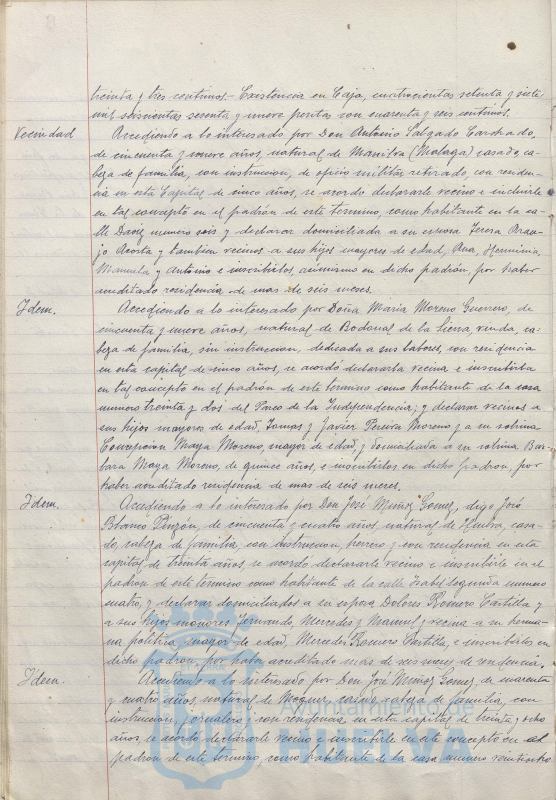 treinta y tres centimos.- Existencia en Caja, cuatrocientas setenta y siete
mil seiscientas secenta y nueve pesetas con cuarenta y seis centimos.
Vecindad
Accediendo a lo interesado por Don Antonio Salgado
de cincuenta y nueve años, natural de Manilva (Malaga) casado, ca-
beza de familia, con instruccion, de oficio militar retirado, con residen-
cia en esta Capital de cinco años, se acordo declararle vecino e incluirle
en tal concepto en el padrón de este termino, como habitante en la ca-
lle Daoiz numero seis y declarar domiciliada a su esposa Teresa Arau-
jo Acosta y tambien vecinos a sus hijos mayores de edad, Ana, Herminia,
Manuela y Antonio e inscribirlos asimismo en dicho padrón, por haber
acreditado residencia de mas de seis meses.
Idem.
Accediendo a lo interesado por Doña Maria Moreno Guerrero, de
cincuenta y nueve años, natural de Bodonal de la Sierra, viuda, ca-
beza de familia, sin instruccion, dedicada a sus labores, con residencia
en esta capital de cinco años, se acordó declararla vecina e inscribirla
en tal concepto en el padrón de este termino como habitante de la casa
numero treinta y dos del Paseo de la Independencia; y declarar vecinos a
sus hijos mayores de edad, Tomas y Javier Pereira Moreno y a su sobrina
Concepcion Maya Moreno, mayor de edad, y domiciliada a su sobrina Bar-
bara Maya Moreno, de quince años, e inscribirlos en dicho padron, por
haber acreditado residencia de mas de seis meses.
Idem.
Accediendo a lo interesado por Don José Muñoz Gomez, digo José
Blanco Pinzón, de cincuenta y cuatro años, natural de Huelva, casa-
do, cabeza de familia, con instruccion, herrero y con residencia en esta
capital de treinta años, se acordo declararle vecino e inscribirle en el
padron de este termino como habitante de la calle Isabel segunda numero
cuatro, y declarar domiciliados a su esposa Dolores Romero Castilla y
a sus hijos menores Fernando, Mercedes y Manuel y vecina a su herma-
na politica, mayor de edad, Mercedes Romero Castilla, e inscribirlos en
dicho padron, por haber acreditado mas de seis meses de residencia.
Idem.
Accediendo a lo interesado por Don José Muñoz Gomez, de cuarenta
y cuatro años, natural de Moguer, casado, cabeza de familia, con
instruccion, jornalero y con residencia en esta capital de treinta y ocho
años, se acordo declararle vecino e inscribirle en este concepto en el
padron de este termino, como habitante de la casa numero veintiocho
Ayuntamiento de
HUELVA